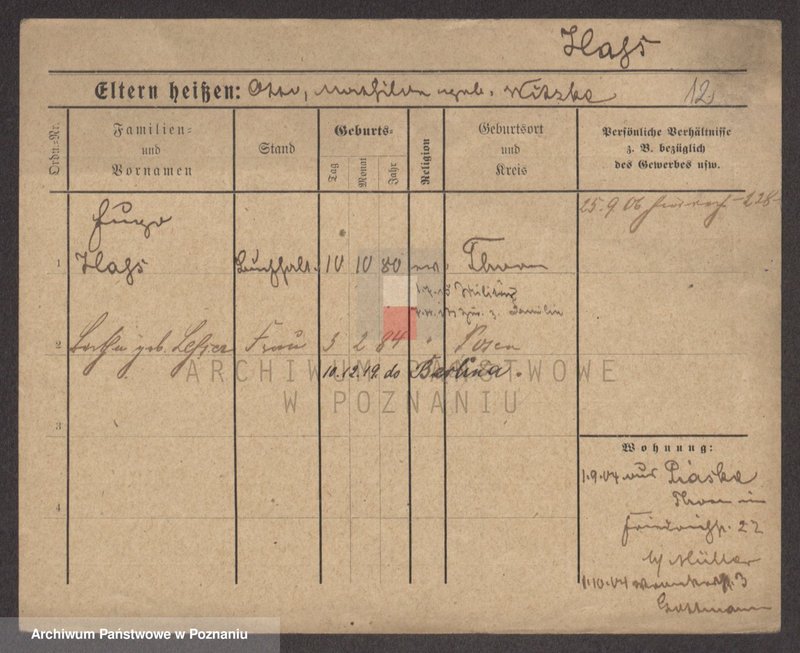 Hahs
Eltern heißen: Otto, Mathilde geb. Witzke 12
Ordn.-Nr.
Familien-
und
Vornamen
Stand
Geburts-
Tag
Monat
Jahr
Religion
Geburtsort
und
Kreis
Persönliche Verhältnisse
z. B. bezüglich
des Gewerbes usw.
25.9 06
Hugo
1 Hahs Buchhalt. 10 10 80 ev. Thorn
Militär
z. Familie
2 geb. Frau 3 2 84 " Posen
10.12.19. do Berlina.
ARCHIWUM PAŃSTWOWE
W POZNANIU
3
4
Wohnung:
1.9.04 aus Piaske
Thorn in
Friedrichstr. 22
b/ Müller
1.10.04 3
Archiwum Państwowe w Poznaniu